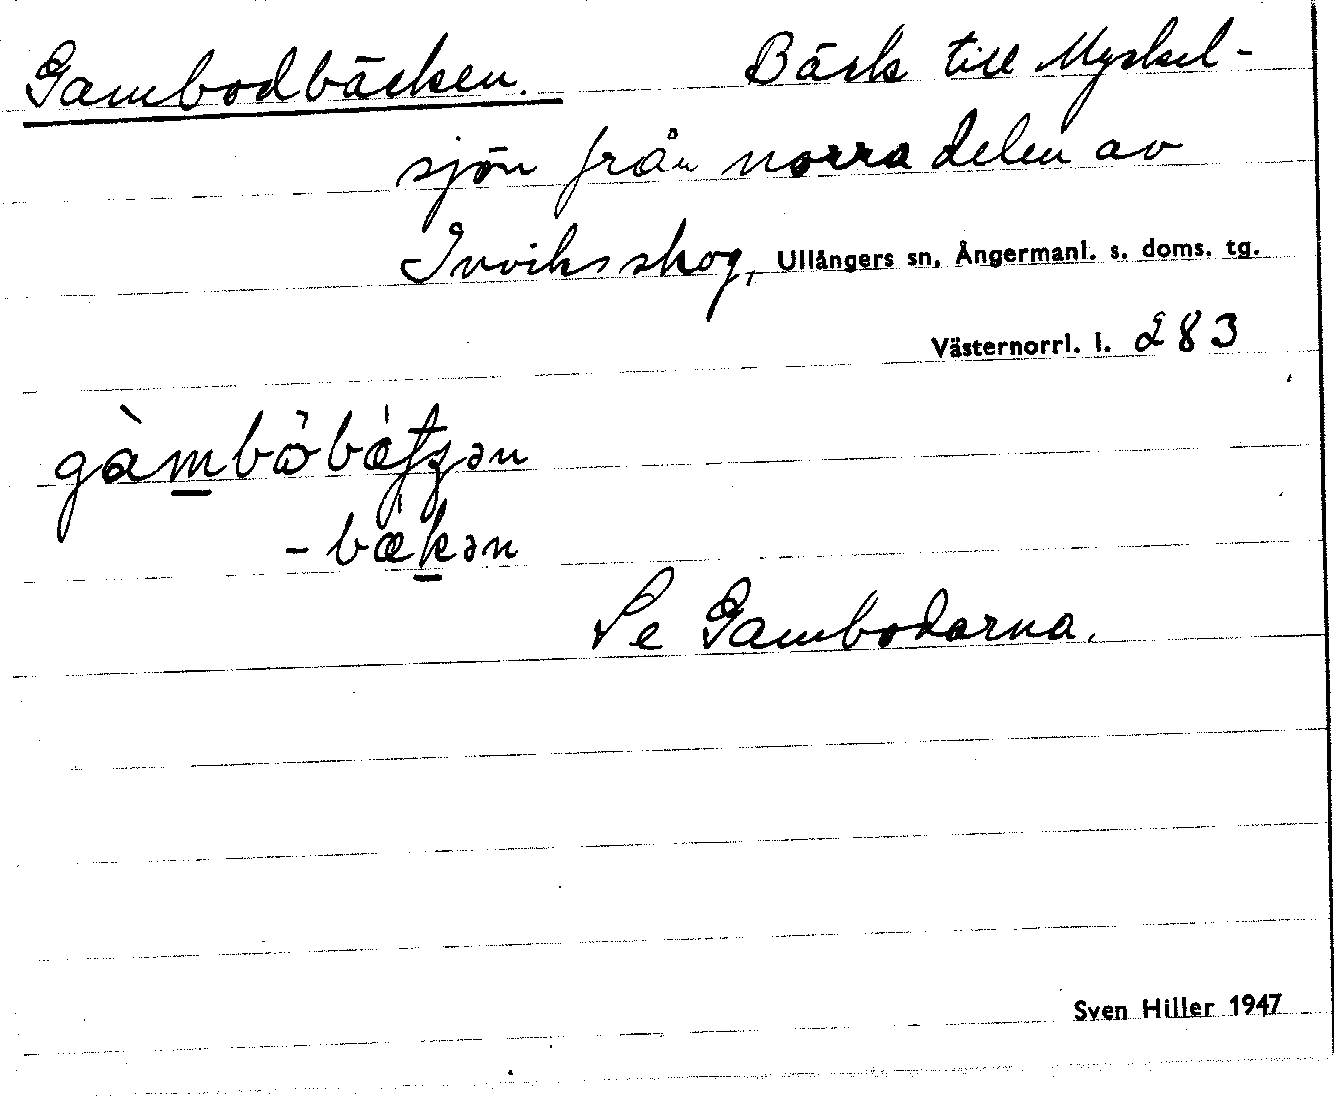 Gambodbäcken. Bäck till Myckel-
sjön från norra delen av
Invikssskog, Ullångers sn, Ångermanl. s. doms. tg.
Västernorrl. l. 283
-bækən
Se Gambodarna.
Sven Hiller 1947